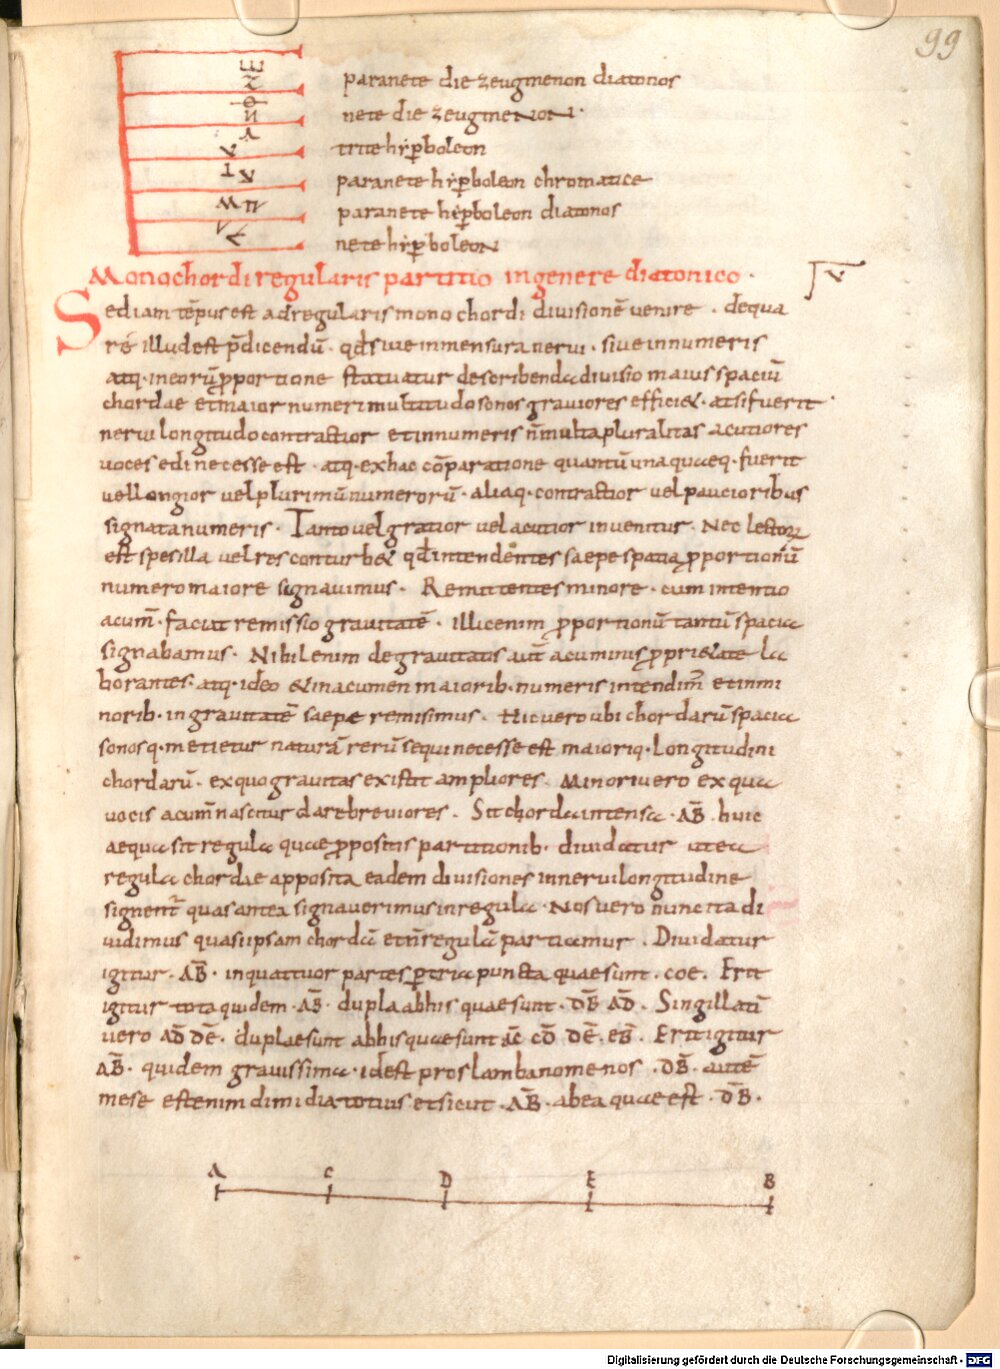 99
paranete die zeugmenon diatonos
nete die zeugmenon·
trite hẏꝑboleon
paranete hẏꝑboleon chromatice
paranete hẏꝑboleon diatonos
nete hẏꝑboleon
Monochordi regularis partitio in genere diatonico·
Sed iam tēpus est ad regularis monochordi divisionē venire. de qua
re illud est p̄dicendū. qđ sive in mensura nervi. sive in numeris
atq· in eorū ꝓportione statuatur describenda divisio maius spaciū
chordae et maior numeri multitudo sonos graviores efficiet. at si fuerit
nervi longitudo contractior et in numeris n̄ multa pluralitas acutiores
voces edi necesse est. atq· ex hac cōparatione quantū unaquaeq· fuerit
vel longior vel plurimū numerorū. aliaq· contractior vel paucioribus
signata numeris. Tanto vel gravior vel acutior invenitur. Nec lectorē
est spes illa vel res conturbet qđ intendentes saepe spatia ꝓportionū
numero maiore signavimus. Remittentes minore. cum intentio
acum̄. facit remissio gravitatē. illic enim ꝓportionū tantū spacia
signabamus. Nihil enim de gravitatis aut acuminis ꝓprietate la
borantes. atq· ideo et in acumen maiorib· numeris intendim̄ et in mi
norib· in gravitatē saepe remisimus. Hic vero ubi chordarū spacia
sonosq· metietur naturā rerū sequi necesse est maioriq· longitudini
chordarū. ex quo gravitas existit ampliores. Minori vero ex qua
vocis acum̄ nascitur dare breviores. Sit chorda intensa ·AB̄· huic
aequa sit regula quae ꝓpositis partitionib· dividatur ut ea
regula chordae apposita eadem divisiones in nervi longitudine
signent̄ quas antea signaverimus in regula. Nos vero nunc ita di
vidimus quasi ipsam chordā et n̄ regulā partiamur. Dividatur
igitur ·AB̄· in quattuor partes ꝑ tria puncta quae sunt ·coe. Erit
igitur tota quidem ·AB̄· dupla ab his quae sunt ·DB̄ AD̄. Singillatī
vero AD̄ DĒ. duplae sunt ab his quae sunt āc CD̄ DĒ. EB̄. Erit igitur
AB̄. quidem gravissima. id est proslambanomenos ·DB̄· autē
mese est enim dimidia totius et sicut ·AB̄· ab ea quae est ·DB̄·
A C D E B
Digitalisierung gefördert durch die Deutsche Forschungsgemeinschaft - DFG